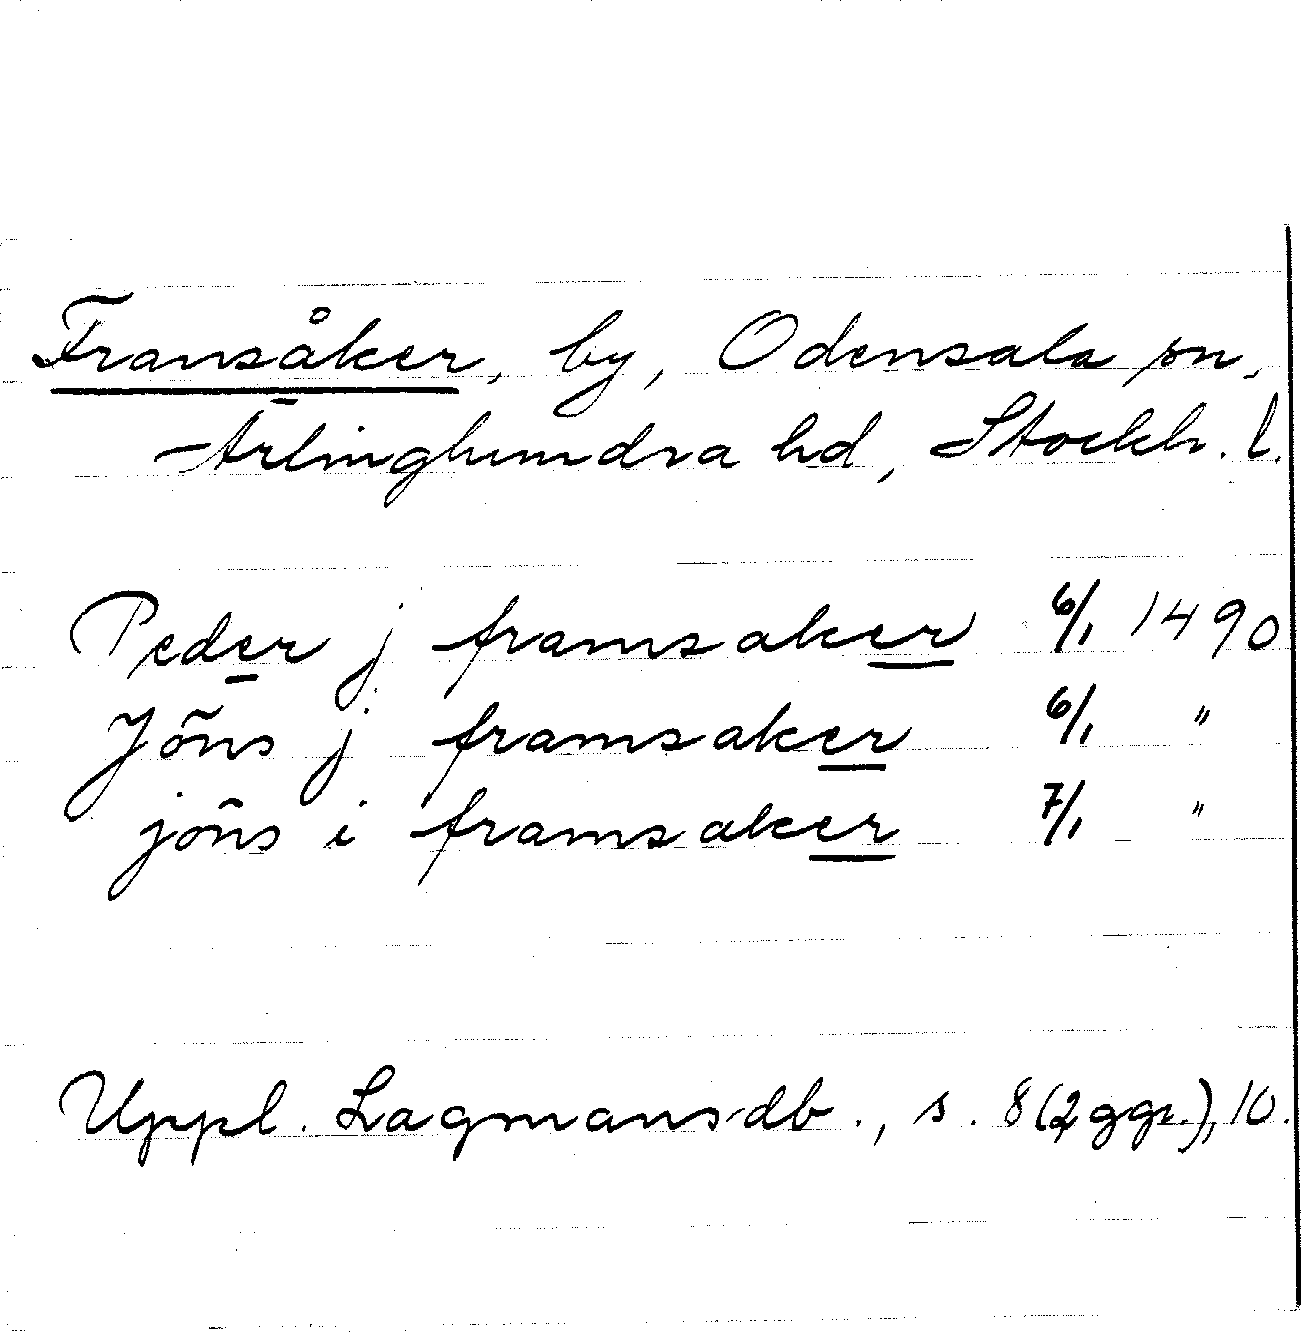 Fransåker, by, Odensala sn,
Ärlinghundra hd, Stockh. l.
Peder j framsaker 6/1 1490
Jöns j framsaker 6/1 "
jöns i framsaker 7/1 "
Uppl. Lagmansdb., s. 8 (2 ggr.), 10.